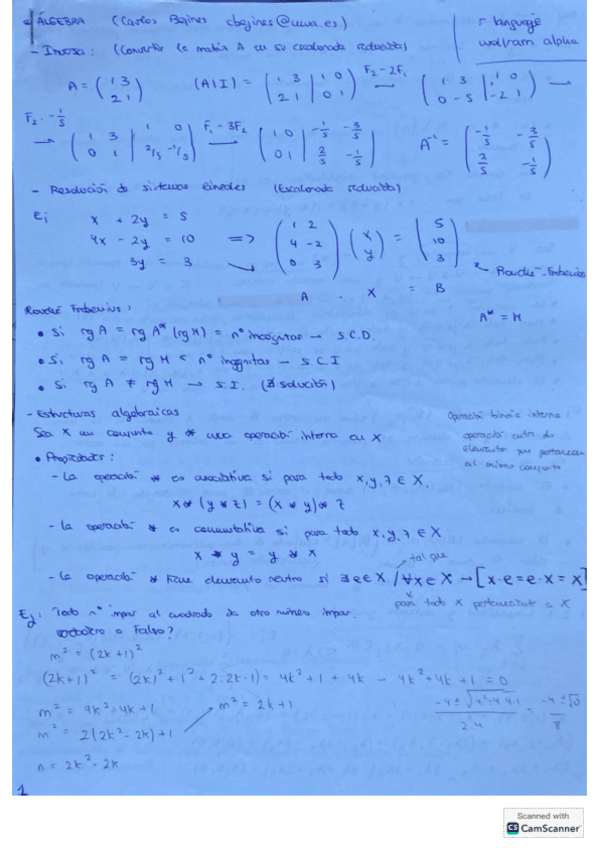 ÁLGEBRA (Carlos Bejines cbejines@uma.es)
r language
wolfram alpha
- Inversa: (Convertir la matriz A en su escalonada reducida)
A = ( 1 3 / 2 1 ) (A|I) = ( 1 3 | 1 0 / 2 1 | 0 1 ) F2-2F1 → ( 1 3 | 1 0 / 0 -5 | -2 1 ) →
F2·-1/5 → ( 1 3 | 1 0 / 0 1 | 2/5 -1/5 ) F1-3F2 → ( 1 0 | -1/5 -3/5 / 0 1 | 2/5 -1/5 ) A⁻¹ = ( -1/5 -3/5 / 2/5 -1/5 )
- Resolución de sistemas lineales (Escalonada reducida)
Ej x + 2y = 5
4x - 2y = 10 => ( 1 2 / 4 -2 / 0 3 ) ( x / y ) = ( 5 / 10 / 3 )
3y = 3
Rouché-Frobenius
A . X = B
A* = M
Rouché Frobenius:
• Si rg A = rg A* (rg M) = nº incógnitas → S.C.D.
• Si rg A = rg M < nº incógnitas → S.C.I
• Si rg A ≠ rg M → S.I. (∄ solución)
- Estructuras algebraicas
Sea X un conjunto y * una operación interna en X
Operación binaria interna:
operación entre do
elementos que pertenecen
al mismo conjunto
• Propiedades:
- La operación * es asociativa si para todo x,y,z ∈ X,
x*(y*z) = (x*y)*z
- La operación * es conmutativa si para todo x,y,z ∈ X
x * y = y * x
tal que
- La operación * tiene elemento neutro si ∃ e ∈ X / ∀x ∈ X → [x·e = e·x = x]
para todo x perteneciente a X
Ej: Todo nº impar al cuadrado da otro número impar.
Verdadero o Falso?
m² = (2k+1)²
(2k+1)² = (2k)² + 1² + 2·2k·1) = 4k² + 1 + 4k - 4k² + 4k + 1 = 0
m² = 4k² + 4k + 1
m² = 2k+1
m² = 2(2k²-2k)+1
n = 2k² - 2k
1
Scanned with
CS CamScanner